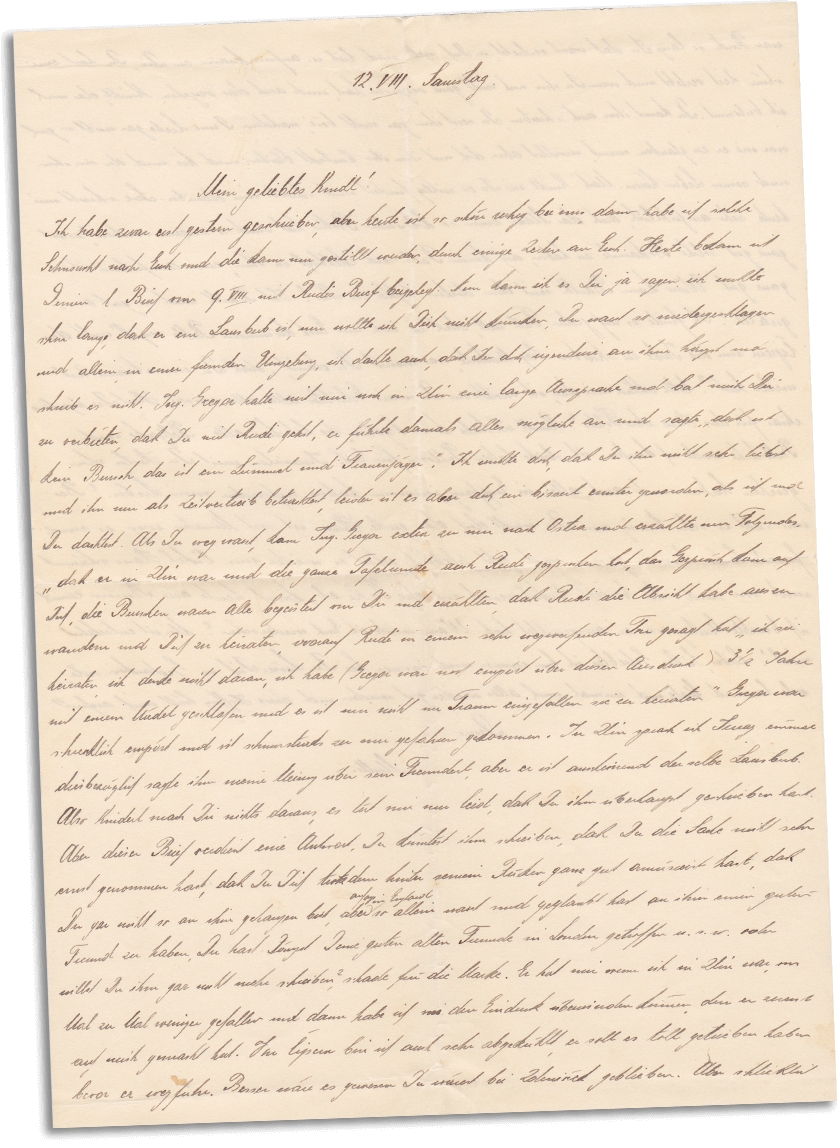 12. VIII. Samstag
Mein geliebtes Kindl!
Ich habe zwar erst gestern geschrieben, aber heute ist so schön ruhig bei uns, dann habe ich solche
Sehnsucht nach Euch und die kann nur gestillt werden, durch einige Zeilen an Euch. Heute bekam ich
Deinen l. Brief vom 9. VIII. mit Rudis Brief beigelegt. Nun kann ich es Dir ja sagen, ich wußte
schon lange, daß er ein Lausbub ist, nun wollte ich Dich nicht kränken, Du warst so niedergeschlagen
und allein, in einer fremden Umgebung, ich dachte auch, daß Du doch irgendwie an ihm hängst und
schrieb es nicht. Ing. Gregor hatte mit mir noch in Zlin eine lange Aussprache und bat mich Dir
zu verbieten, daß Du mit Rudi gehst, er führte damals alles mögliche an und sagte „das ist
kein Bursch, das ist ein Lümmel und Frauenjäger". Ich wußte doch, daß Du ihn nicht sehr liebst
und ihn nur als Zeitvertreib betrachtest, leider ist es aber doch ein bisserl ernster geworden, als ich und
Du dachtest. Als Du weg warst, kam Ing. Gregor extra zu mir nach Ostra und erzählte mir Folgendes.
„daß er in Zlin war und die ganze Tafelrunde auch Rudi gesprochen hat, das Gespräch kam auf
Dich, die Burschen waren Alle begeistert von Dir und erzählten, daß Rudi die Absicht habe auszu
wandern und Dich zu heiraten, worauf Rudi in einem sehr wegwerfenden Ton gesagt hat „ich sie
heiraten, ich denke nicht daran, ich habe (Gregor war noch empört über diesen Ausdruck) 3 1/2 Jahre
mit einem Mädel geschlafen und es ist mir nicht im Traum eingefallen sie zu heiraten" Gregor war
schrecklich empört und ist schnurstracks zu mir gefahren gekommen. In Zlin sprach ich einmal
diesbezüglich sagte ihm meine Meinung über sein Freunderl, aber er ist anscheinend derselbe Lausbub.
Also Kinderl mach Dir nichts daraus, es tut mir nur leid, daß Du ihm überhaupt geschrieben hast.
Aber dieser Brief verdient eine Antwort, Du könntest ihm schreiben, daß Du die Sache nicht sehr
ernst genommen hast, daß Du Dich trotzdem hinter seinem Rücken ganz gut amüsiert hast, daß
Du gar nicht so an ihm gehangen bist, aber anfangs in England so allein warst und geglaubt hast an ihm einen guten
Freund zu haben, Du hast längst Deine guten alten Freunde in London getroffen u. s. w. oder
willst Du ihm gar nicht mehr schreiben? schade für die Marke. Er hat mir wenn ich in Zlin war, von
Mal zu Mal weniger gefallen und dann habe ich nie den Eindruck überwinden können, den er zuerst
auf mich gemacht hat. Im bin ich auch sehr abgekühlt, er soll es toll getrieben haben
bevor er wegfuhr. Besser wäre es gewesen Du wärest bei geblieben. Aber schließlich